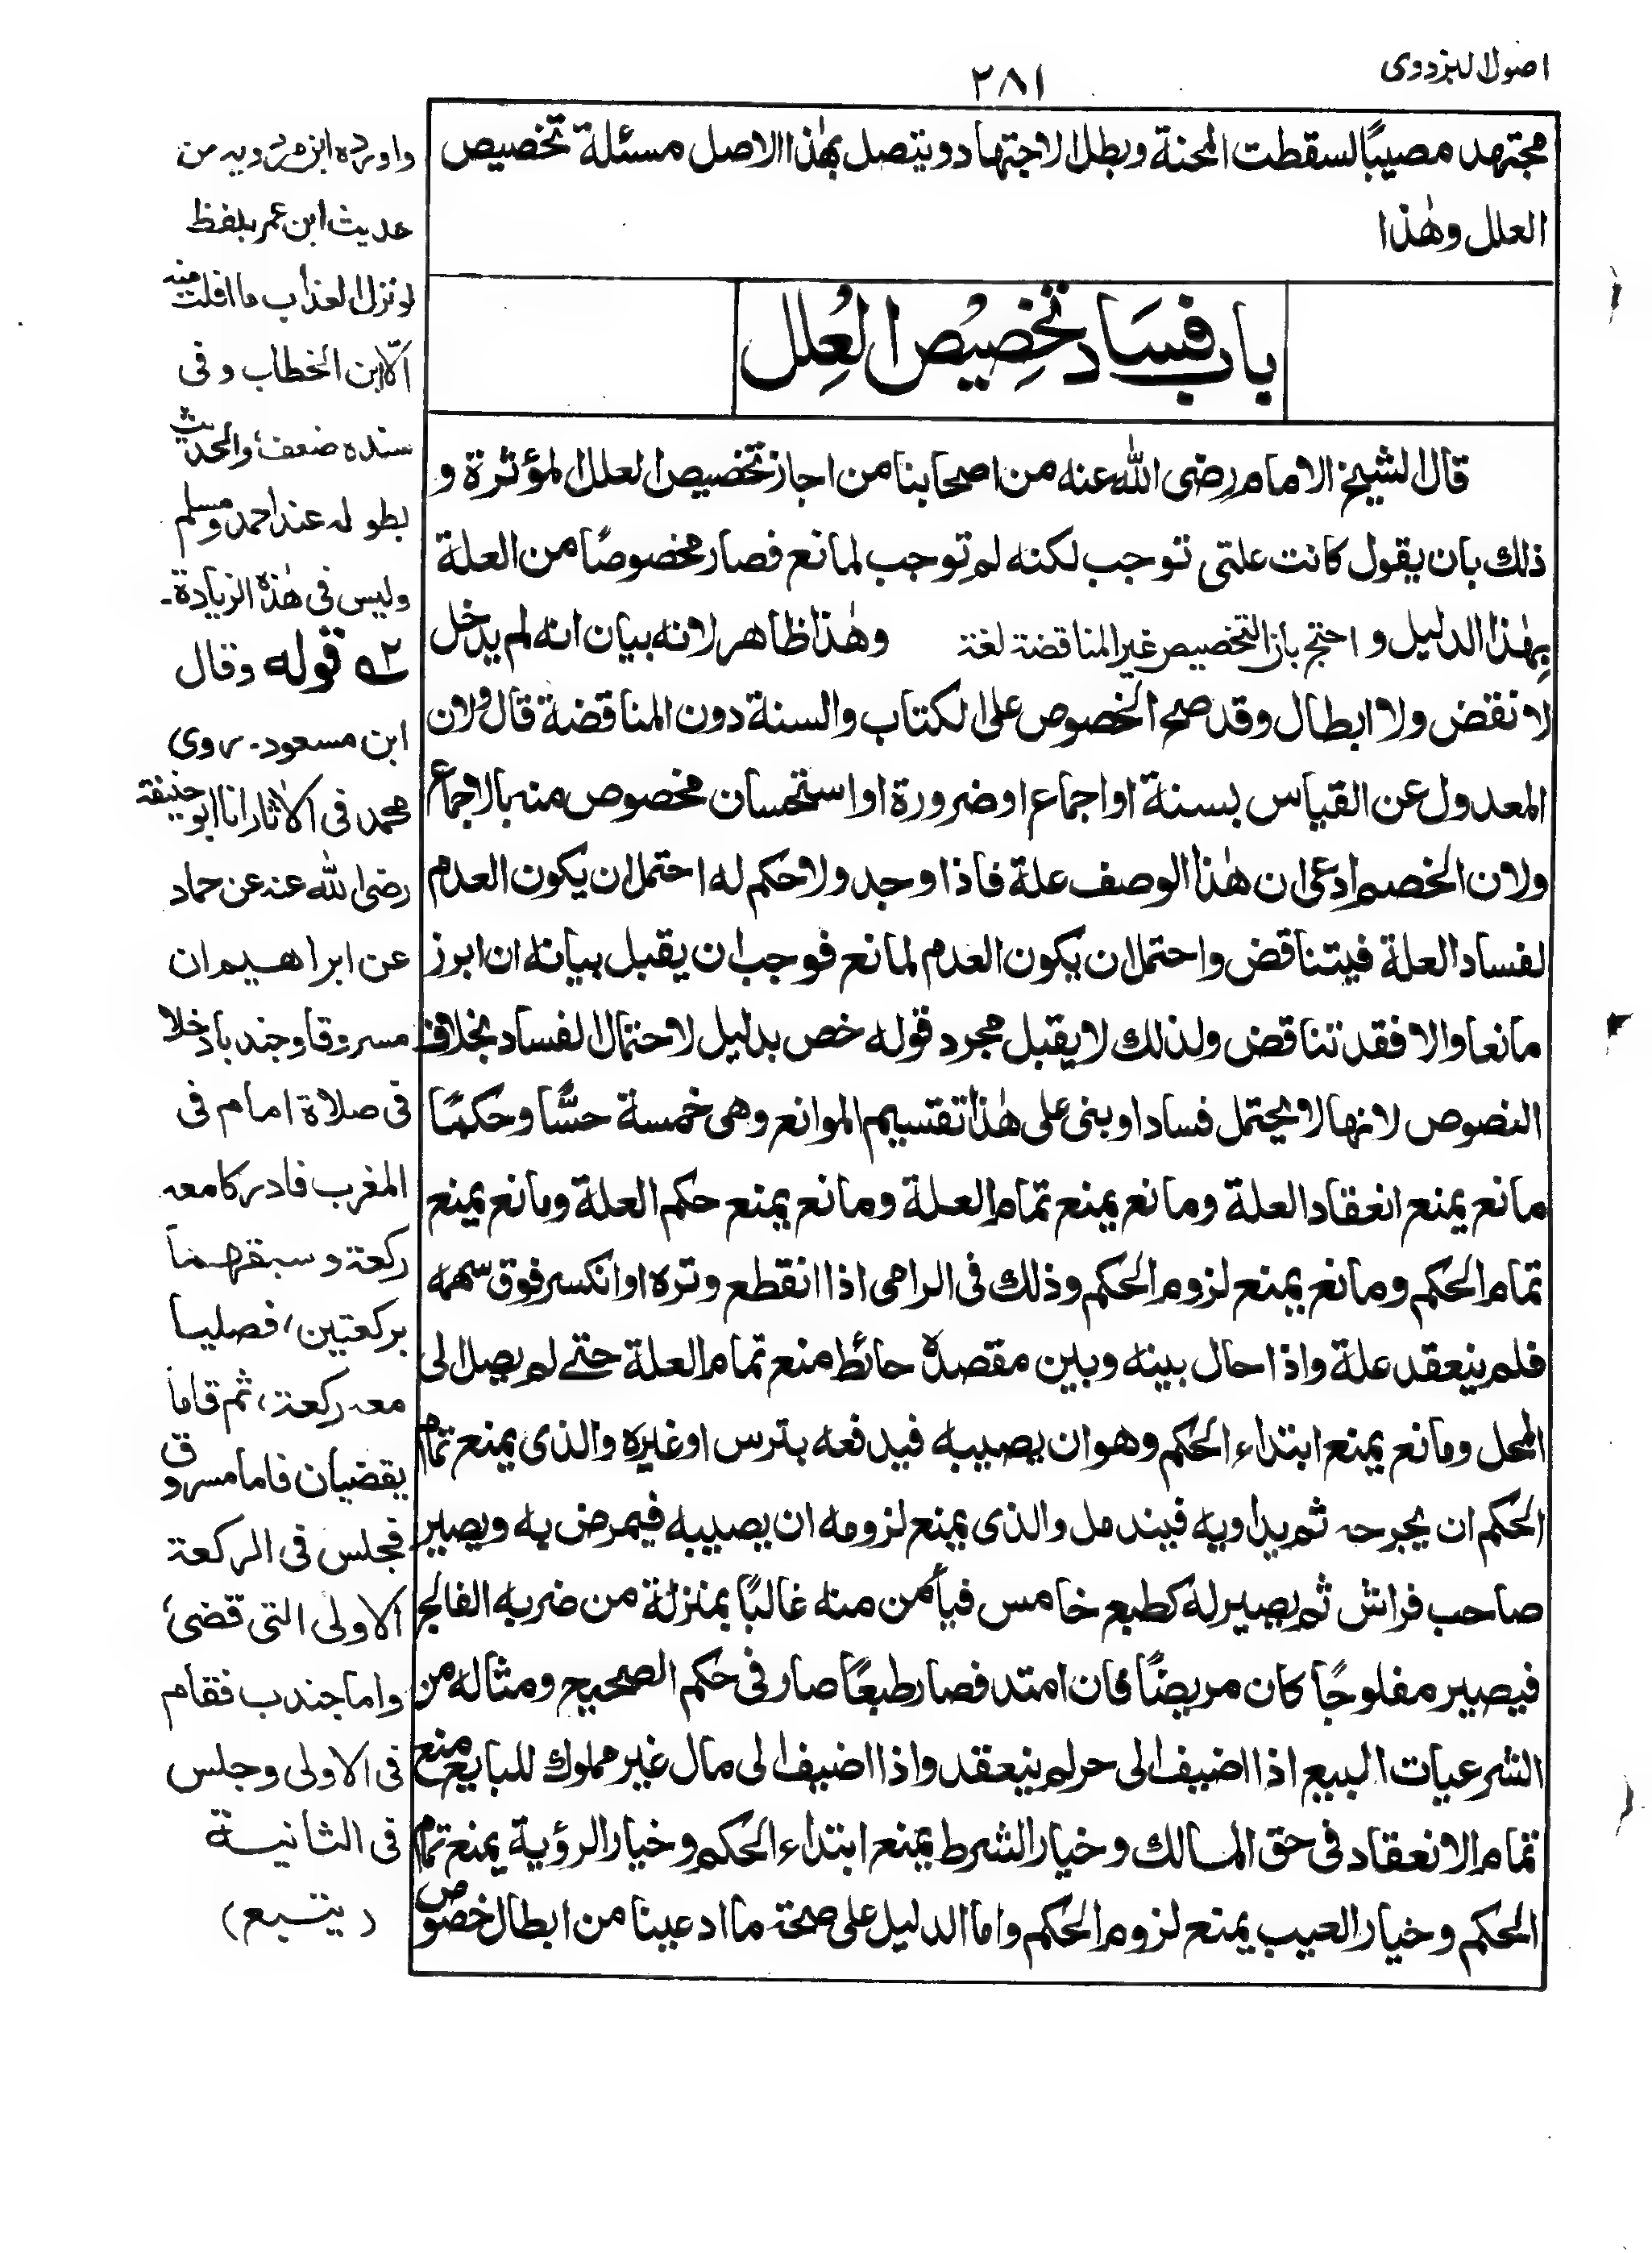 اصول البزدوی
۲۸۱
مجتهد مصيبًا لسقطت المحنة وبطل الاجتهاد ويتصل بهٰذا الاصل مسئلة تخصيص
العلل وهٰذا
باب فساد تخصيص العلل
قال الشيخ الامام رضى الله عنه من اصحابنا من اجاز تخصيص العلل المؤثرة و
ذلك بان يقول كانت علتى توجب لكنه لم توجب لمانع فصار مخصوصًا من العلة
بهٰذا الدليل و احتج بان التخصيص غير المناقضة لغة وهٰذا ظاهر لانه بيان انه لم يدخل
لا نقض ولا ابطال وقد صح الخصوص على الكتاب والسنة دون المناقضة قال ولان
المعدول عن القياس بسنة او اجماع او ضرورة او استحسان مخصوص منه بالاجماع
ولان الخصم ادعى ان هٰذا الوصف علة فاذا وجد ولا حكم له احتمل ان يكون العدم
لفساد العلة فيتناقض واحتمل ان يكون العدم لمانع فوجب ان يقبل بيانه ان ابرز
مانعا والا فقد تناقض ولذلك لا يقبل مجرد قوله خص بدليل لاحتمال الفساد بخلاف
النصوص لانها لا يحتمل فسادا وبنى على هٰذا تقسيم الموانع وهى خمسة حسًّا وحكمًا
مانع يمنع انعقاد العلة ومانع يمنع تمام العلة ومانع يمنع حكم العلة ومانع يمنع
تمام الحكم ومانع يمنع لزوم الحكم وذلك فى الرامى اذا انقطع وتره او انكسر فوق سهمه
فلم ينعقد علة واذا حال بينه وبين مقصده حائط منع تمام العلة حتے لم يصل الى
المحل ومانع يمنع ابتداء الحكم وهو ان يصيبه فيدفعه بترس او غيره والذى يمنع تمام
الحكم ان يجرحه ثم يداويه فيندمل والذى يمنع لزومه ان يصيبه فيمرض به ويصير
صاحب فراش ثم يصير له كطبع خامس فيأمن منه غالبًا بمنزلة من ضربه الفالج
فيصير مفلوجًا كان مريضًا فان امتد فصار طبعًا صار فى حكم الصحيح ومثاله من
الشرعيات البيع اذا اضيف الى حر لم ينعقد واذا اضيف الى مال غير مملوك للبايع منع
تمام الانعقاد فى حق المالك وخيار الشرط يمنع ابتداء الحكم وخيار الرؤية يمنع تمام
الحكم وخيار العيب يمنع لزوم الحكم واما الدليل على صحة ما ادعينا من ابطال خصوص
واورده ابن مردويه من
حديث ابن عمر بلفظ
لو نزل العذاب ما افلت منه
الّا ابن الخطاب وفى
سنده ضعف، والحديث
بطوله عند احمد ومسلم
وليس فى هٰذه الزيادة۔
۲ه قوله وقال
ابن مسعود۔ روى
محمد فى الاٰثار انا ابو حنيفة
رضى الله عنه عن حماد
عن ابراهيم ان
مسروقا وجندبا دخلا
فى صلاة امام فى
المغرب فادركا معه
ركعة وسبقهما
بركعتين، فصليا
معه ركعة، ثم قاما
يقضيان فاما مسروق
فجلس فى الركعة
الاولى التى قضى،
واما جندب فقام
فى الاولى وجلس
فى الثانية
(يتبع)